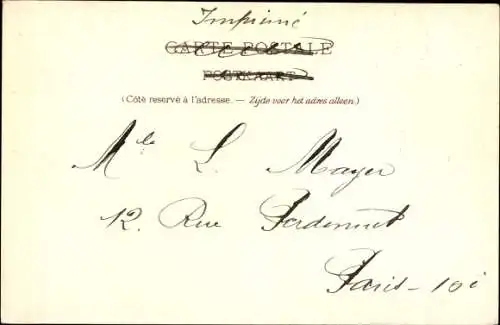 Imprimé
CARTE POSTALE
POSTKAART
(Côté reservé à l'adresse. — Zijde voor het adres alleen.)
Mlle L. Mayer
12. Rue
Paris - 10e